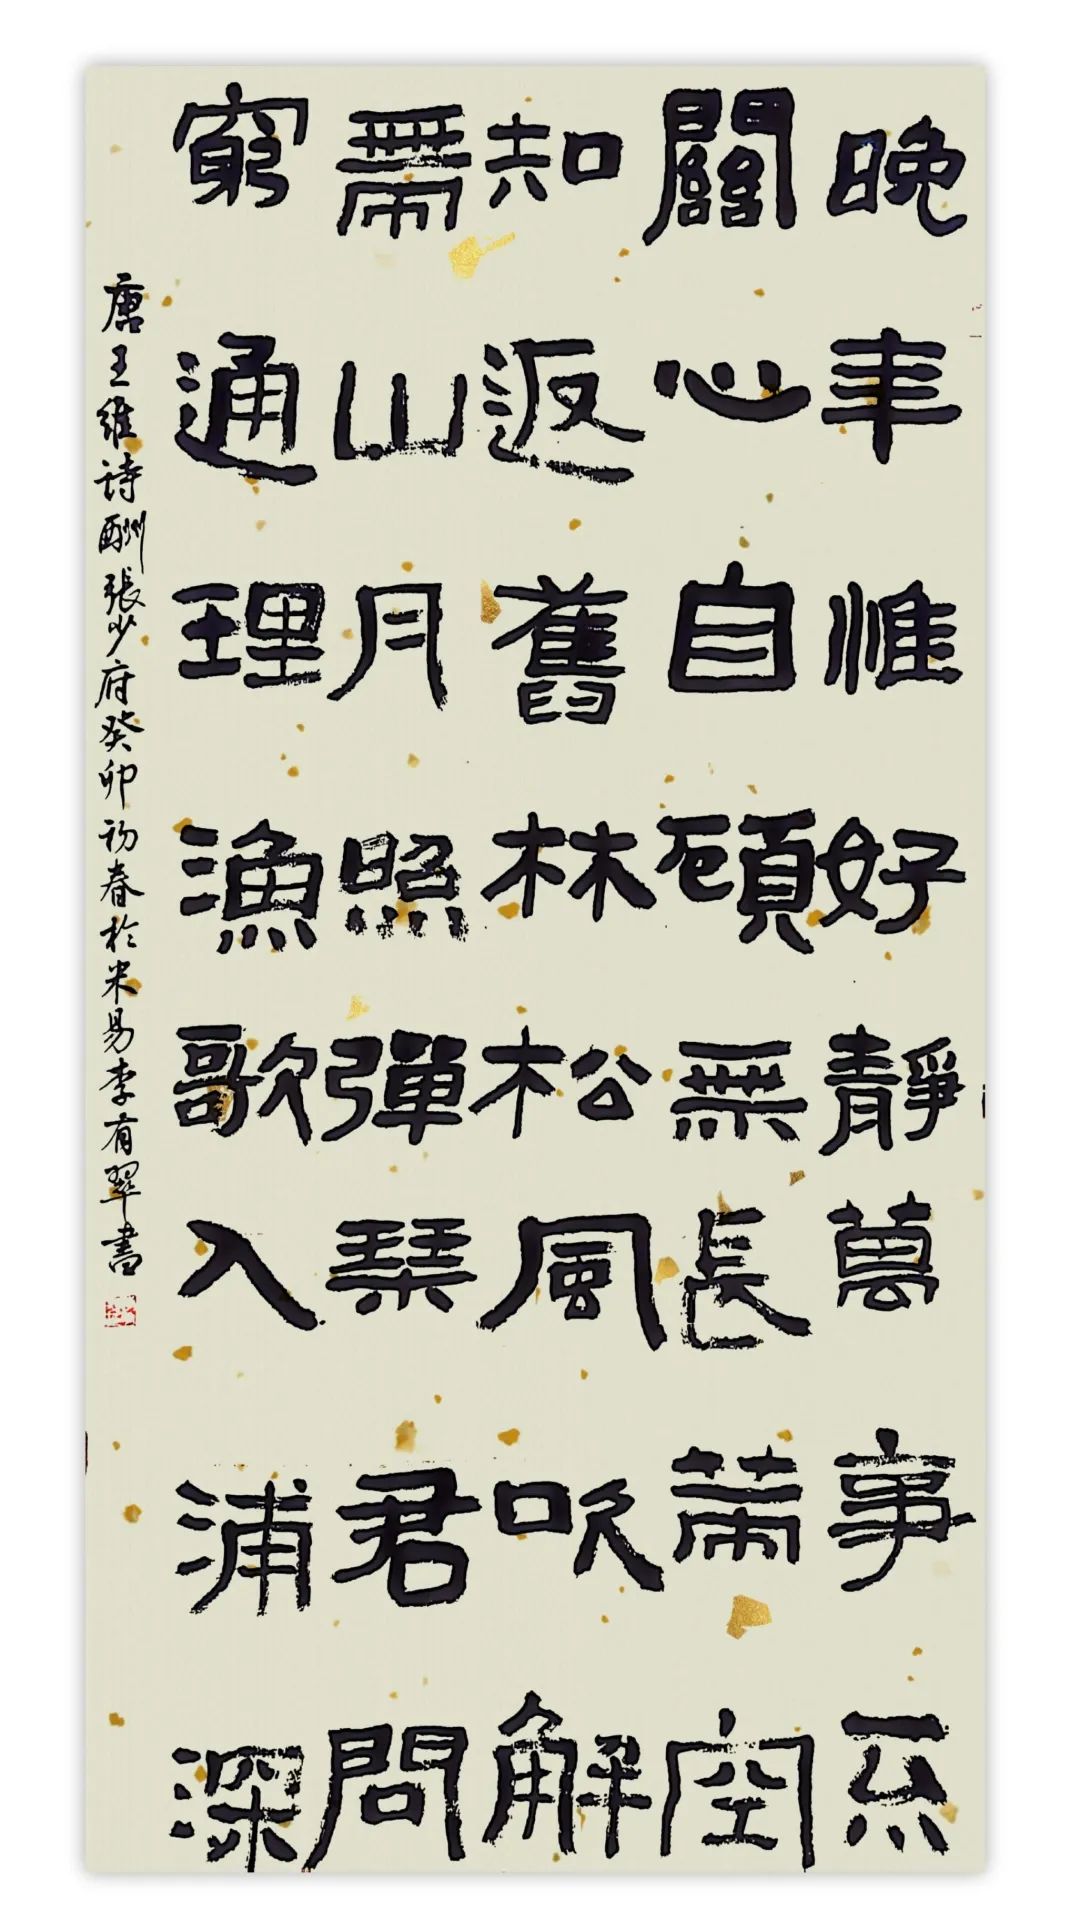 晚年惟好靜萬事不
關心自顧無長策空
知返舊林松風吹解
帶山月照彈琴君問
窮通理漁歌入浦深
唐王維诗酬張少府癸卯初春於米易李有翠書